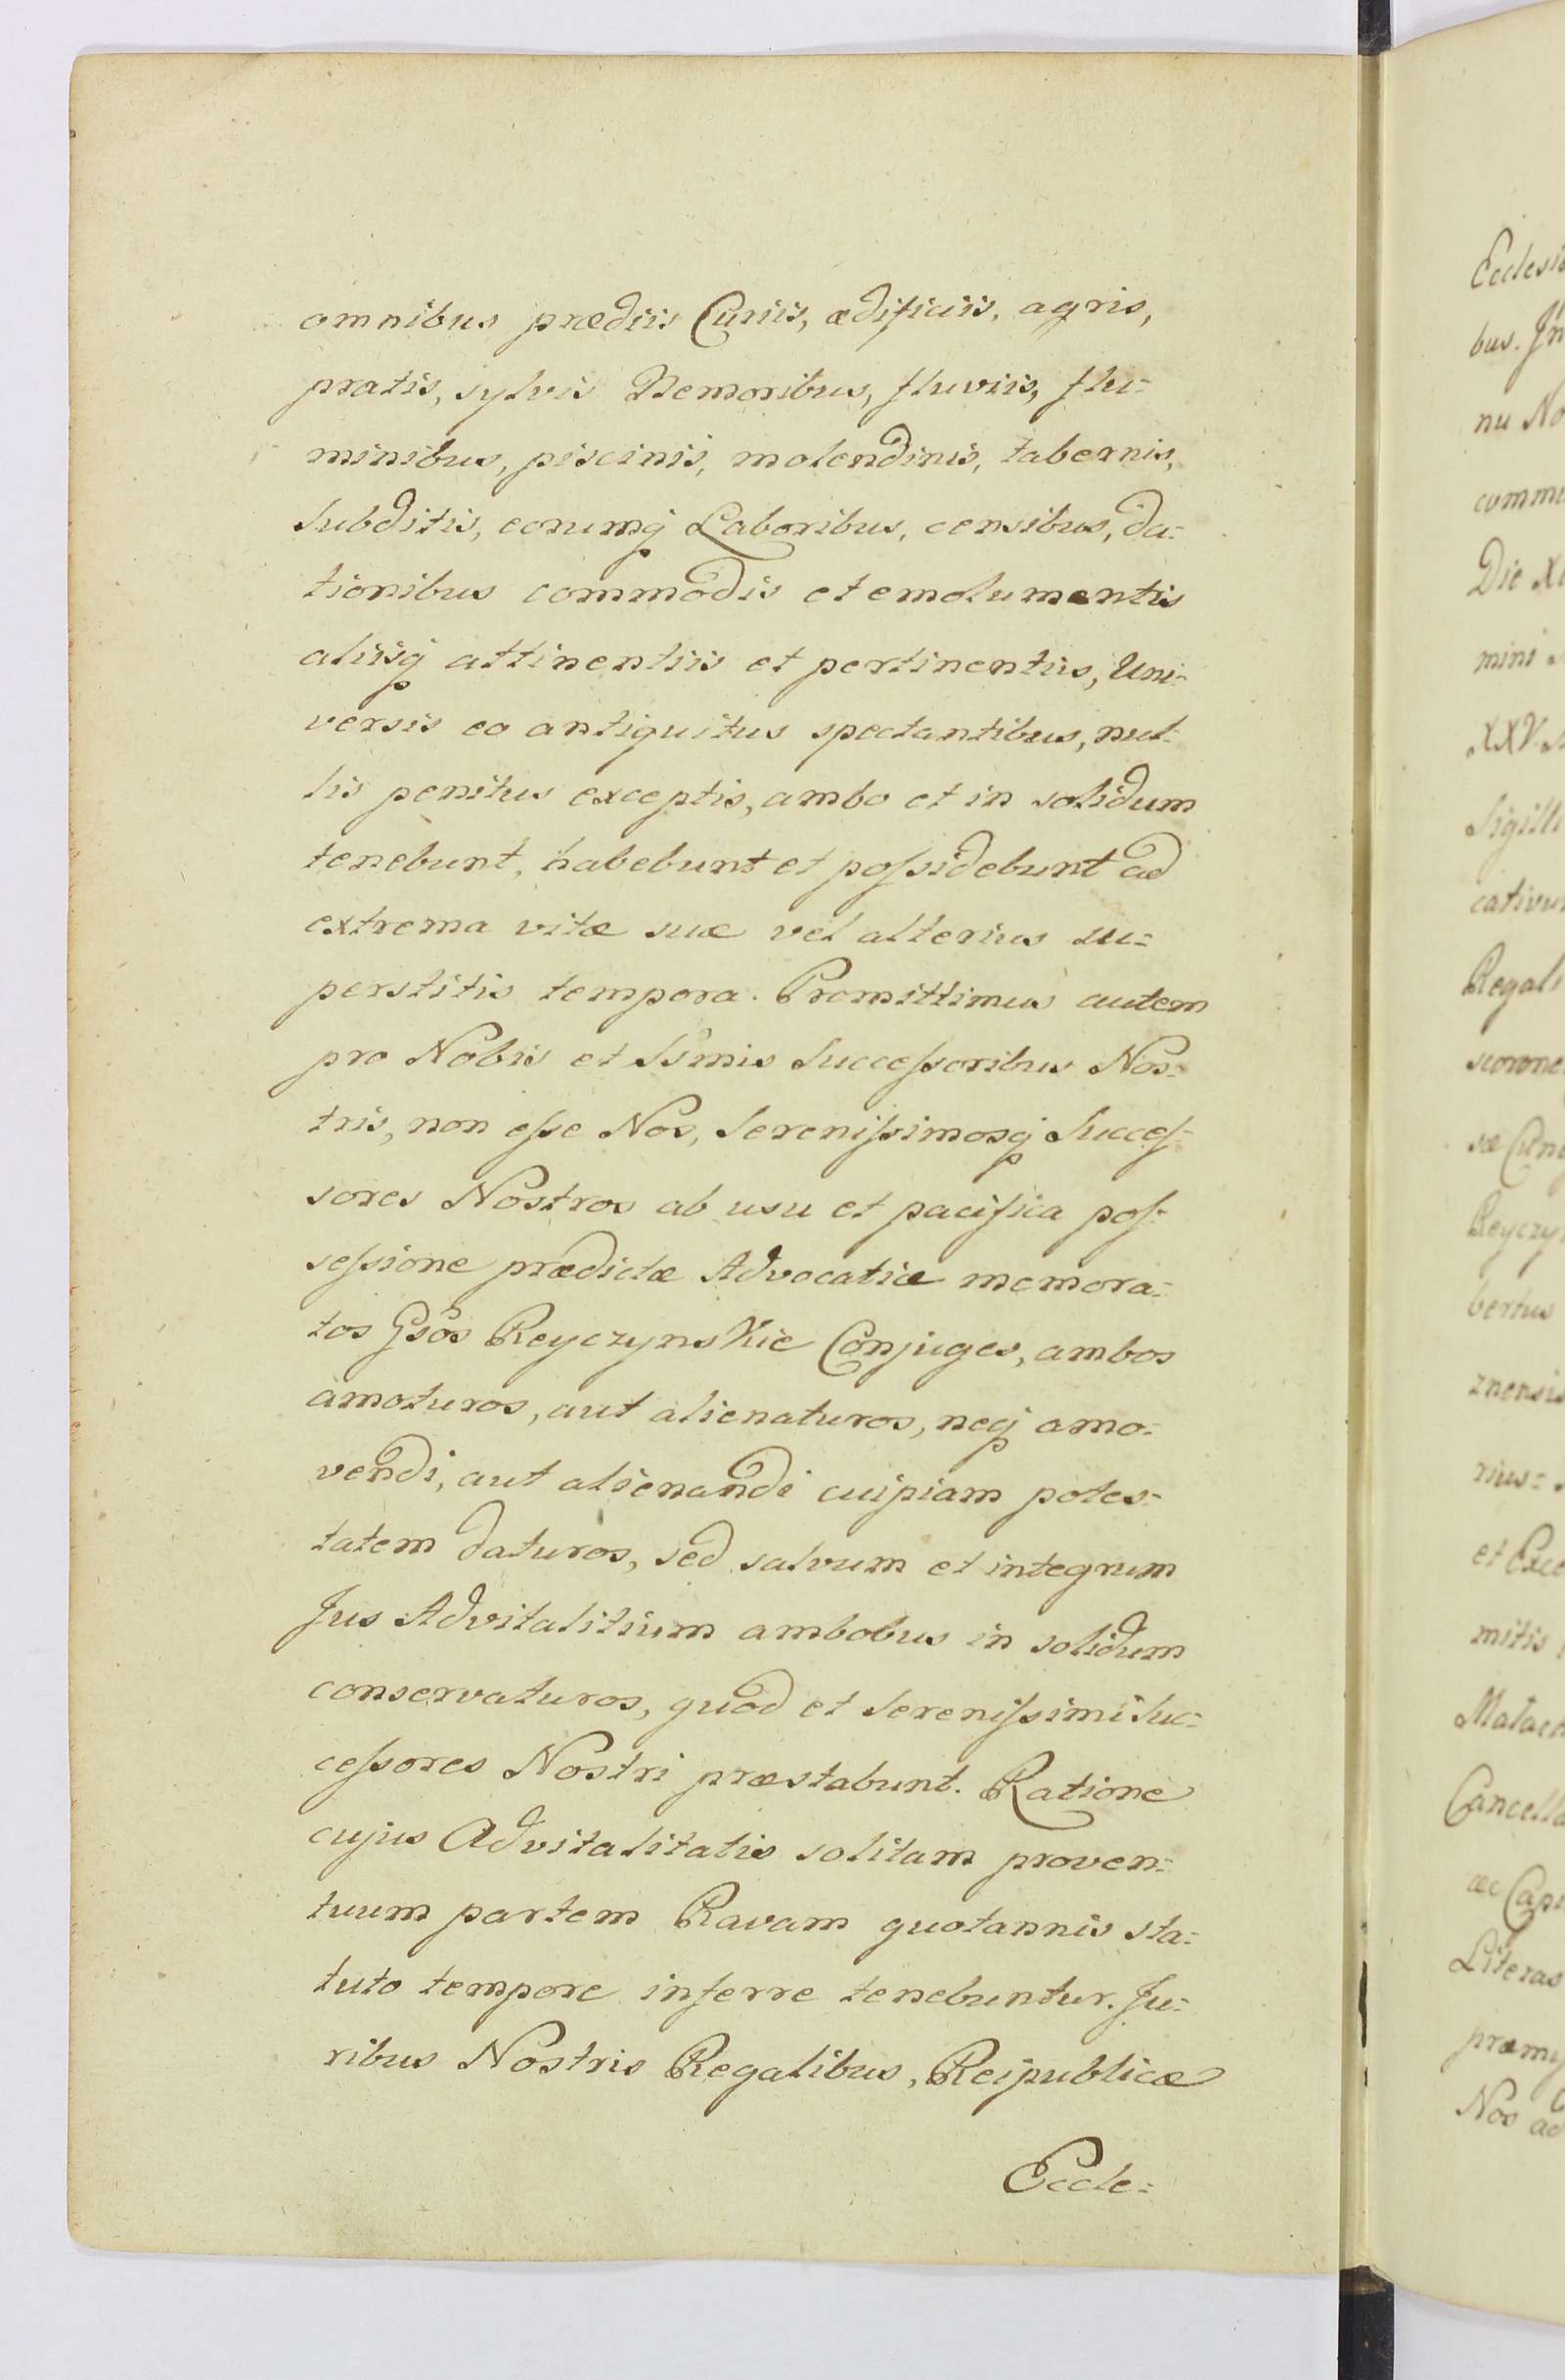 omnibus prædiis Curiis, ædificiis, agris,
pratis, sylvis Nemoribus, fluviis, flu=
minibus, piscinis, molendinis, tabernis,
Subditis, eorumq Laboribus, censibus, da=
tionibus commodis et emolumentis
aliisq attinentiis et pertinentiis, Uni=
versis eo antiquitus spectantibus, nul=
lis penitus exceptis, ambo et in solidum
tenebunt, habebunt et poſsidebunt ad
extrema vitæ suæ vel alterius su=
perstitis tempora. Promittimus autem
pro Nobis et Ssmis Succeſsoribus Nos=
tris, non eſse Nos, Sereniſsimosq Succeſ=
sores Nostros ab usu et pacifica poſ=
seſsione prædictæ Advocatiæ memora=
tos Gsos Reyczynskie Conjuges, ambos
amoturos, aut alienaturos, neq amo=
vendi, aut alienandi cuipiam potes=
tatem daturos, sed salvum et integrum
Jus Advitalitium ambobus in solidum
conservaturos, quod et Sereniſsimi Suc=
ceſsores Nostri præstabunt. Ratione
cujus Advitalitatis solitam proven=
tuum partem Ravam quotannis sta=
tuto tempore inferre tenebuntur. Ju=
ribus Nostris Regalibus, Reipublicæ
Eccle=
Ecclesi
bus. In
nu No
commu
Die X
mini
XXV.
Sigilli
cativu
Regali
scorone
sæ Cun
Reyczy
bertus
znensis
rius=
et Exce
mitis
Malach
Cancella
ac Capi
Literas
præm
Nos ad